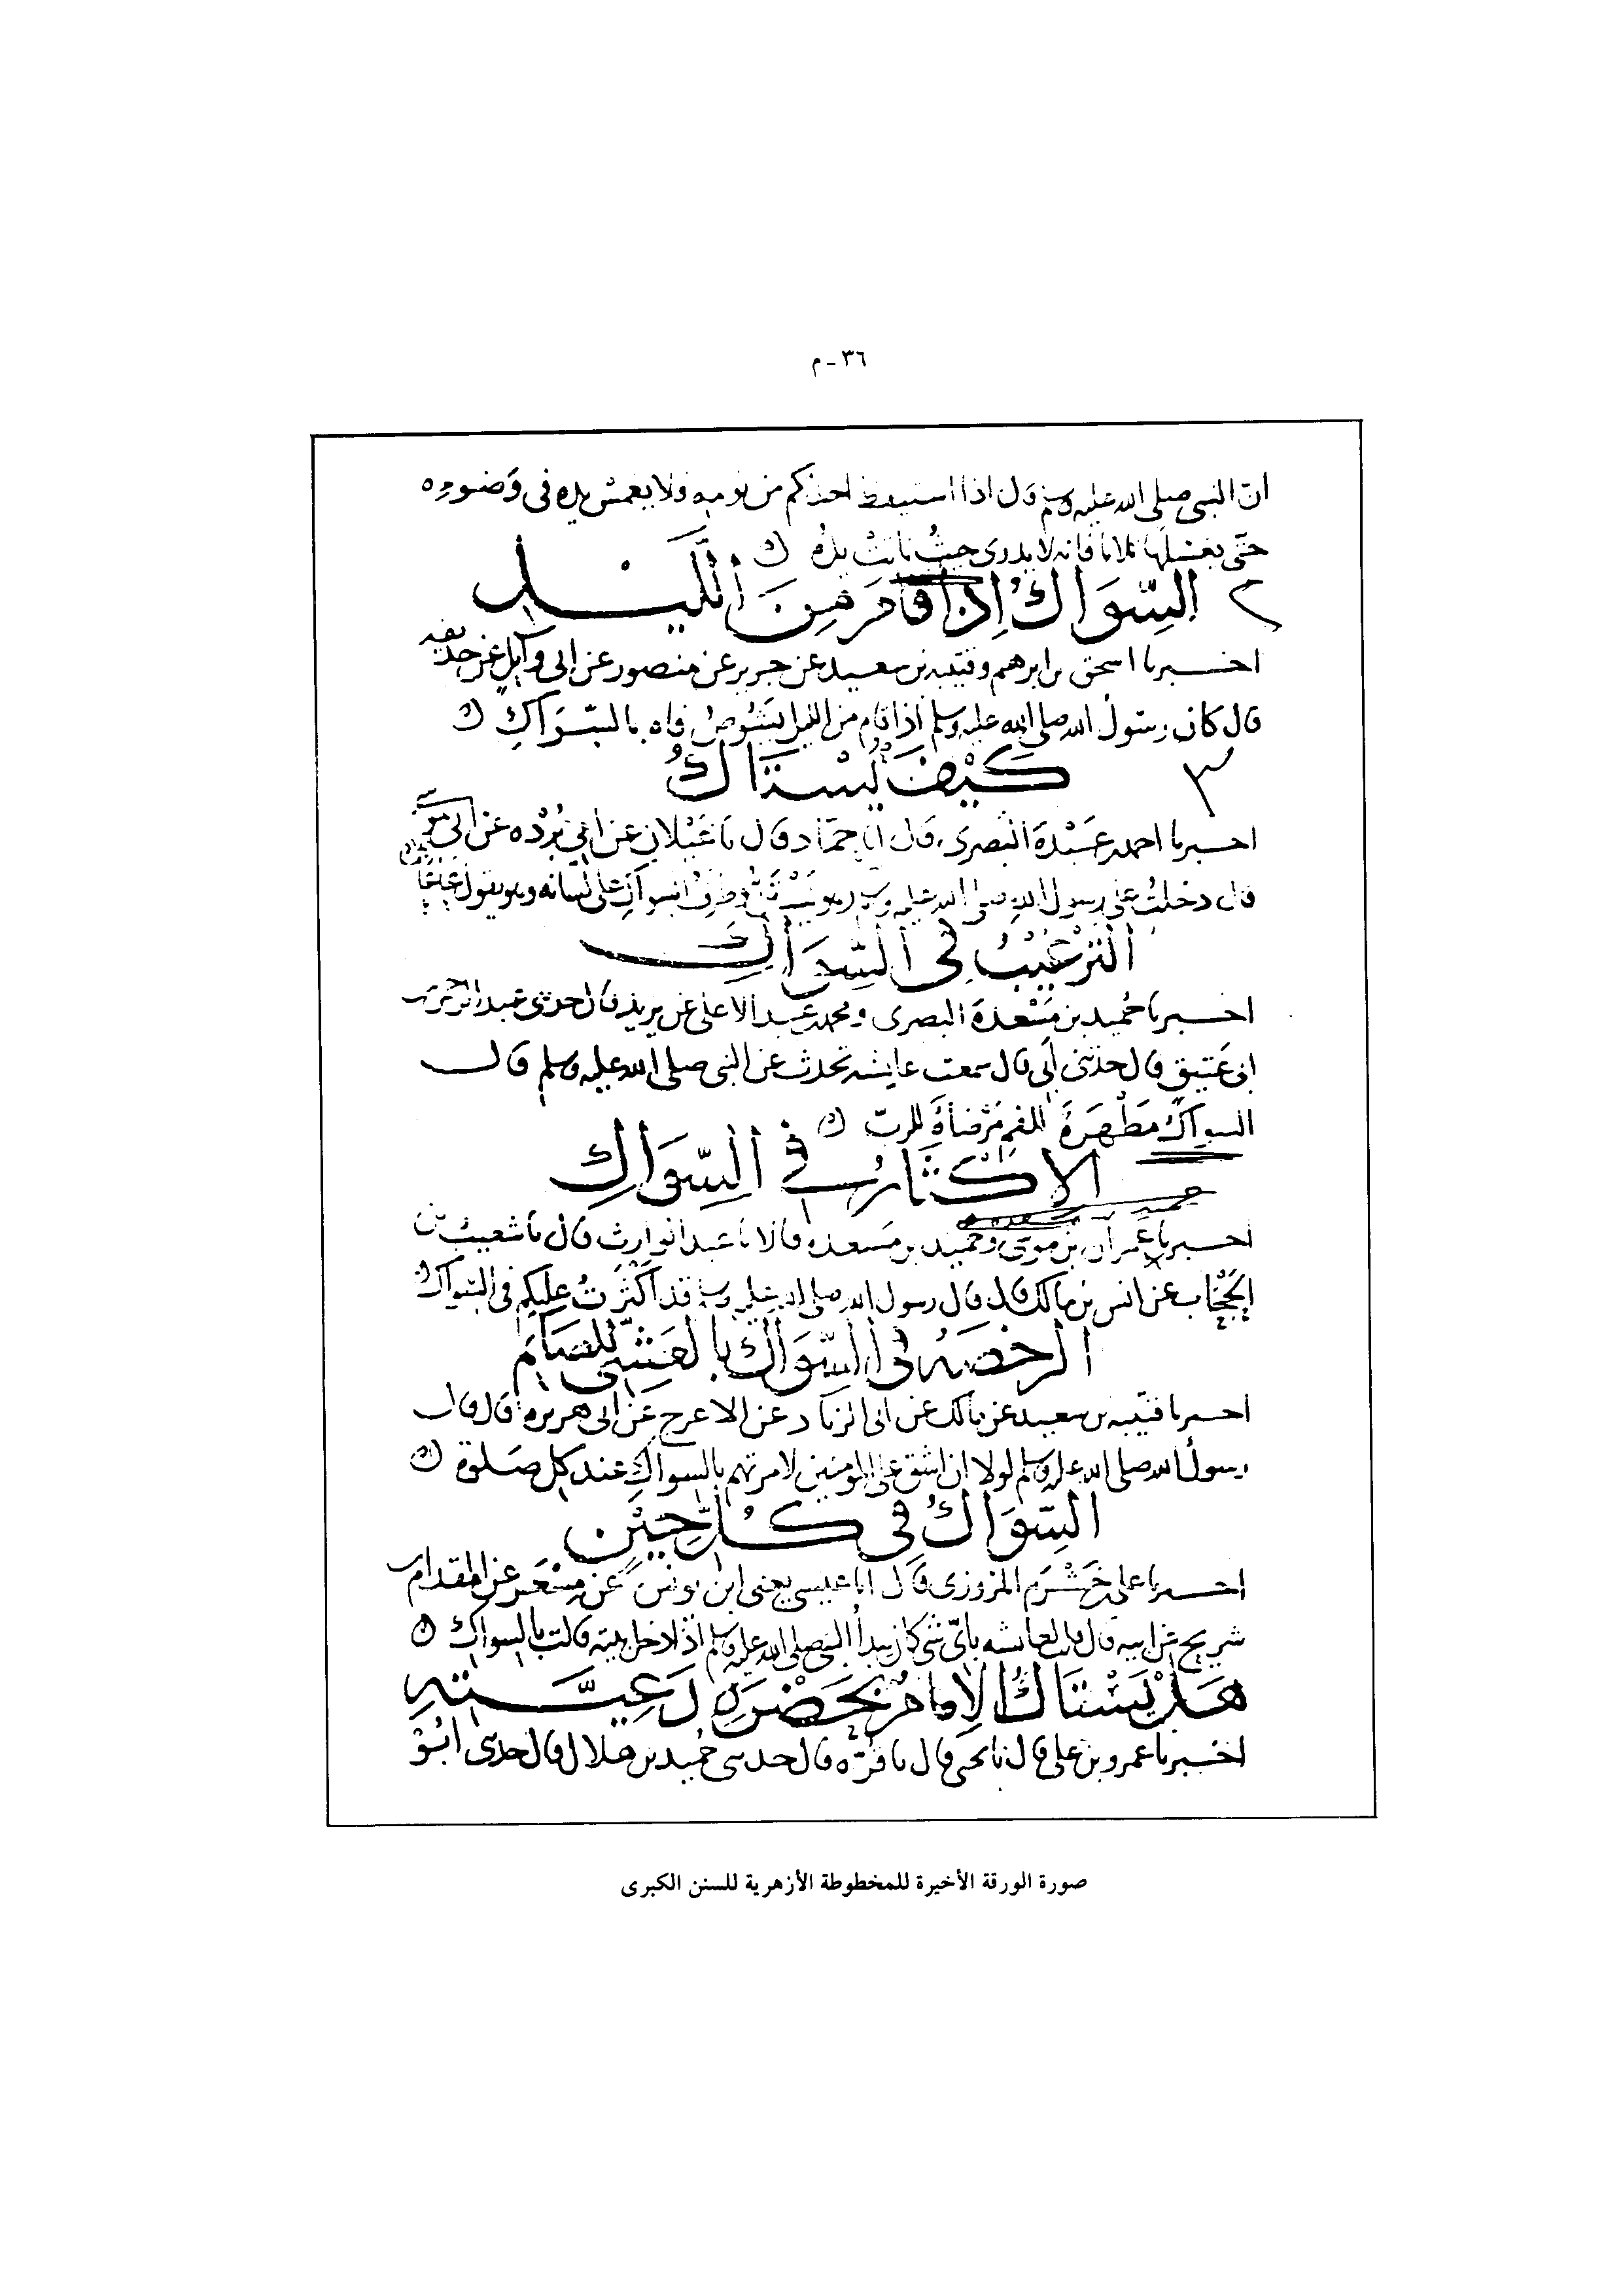 ٣٦ - م
ان النبى صلى الله عليه وسلم قال اذا استيقظ احدكم من نومه فلا يغمس يده فى وضوءه
حتى يغسلها ثلاثا فانه لا يدرى حيث باتت يده
٢ السِّوَاكُ اِذَا قَامَ مِنَ اللَّيْلِ
اخبرنا اسحق بن ابرهيم وقتيبه بن سعيد عن جرير عن منصور عن ابى وايل عن حذيفه
قال كان رسول الله صلى الله عليه وسلم اذا قام من الليل يَشُوصُ فاه بالسِّوَاكِ
٣ كَيْفَ يَسْتَاكُ
اخبرنا احمد بن عَبْدَة البصرى قال انا حمّاد قال نا غَيْلان عن ابى بُرْده عن ابى موسى
قال دخلتُ على رسول الله صلى الله عليه وسلم وهو يَسْتَنُّ وطرفُ السواكِ على لسانه وهو يقول
التَّرْغِيْبُ فِى السِّوَاكِ
اخبرنا حُميد بن مَسْعدة البصرى ومحمد بن عبد الاعلى عن يزيد قال حدثنى عبد الرحمن بن
ابى عَتيق قال حدثنى أبى قال سمعت عايشه تحدث عن النبى صلى الله عليه وسلم قال
السواكُ مَطْهَرَةٌ للفمِ مَرْضَاةٌ للربّ
الاِكْثَارُ فى السِّوَاكِ
اخبرنا عمران بن موسى وحُميد بن مَسعده قالا نا عبد الوارث قال نا شعيب بن
الحَبْحَاب عن انس بن مالك قال قال رسول الله صلى الله عليه وسلم قد اكْثَرْتُ عليكم فى السِّواك
الرخصه فى السِّوَاك بالعَشِىّ للصَايم
اخبرنا قتيبه بن سعيد عن مالك عن ابى الزناد عن الاعرج عن ابى هريره قال قال
رسولُ الله صلى الله عليه وسلم لولا ان اشق على المومنين لامرتهم بالسواكِ عند كل صَلوة
السِّوَاكُ فِى كُلِّ حِيْن
اخبرنا على بن خَشْرَم المروزى قال انا عيسى يعنى ابن يونس عن مِسْعَر عن المقدام بن
شريح عن ابيه قال قلت لعايشه باىّ شى كان يبدأُ النبى صلى الله عليه وسلم اذا دخل بيته قالت بالسواك
هَلْ يَسْتَاكُ الاِمَامُ بحَضْرَةِ رَعِيَّتِهِ
اخبرنا عمرو بن على قال نا يحيى قال نا قرّه قال حدثنى حُميد بن هلال قال حدثنى ابُوْ
صورة الورقة الأخيرة للمخطوطة الأزهرية للسنن الكبرى